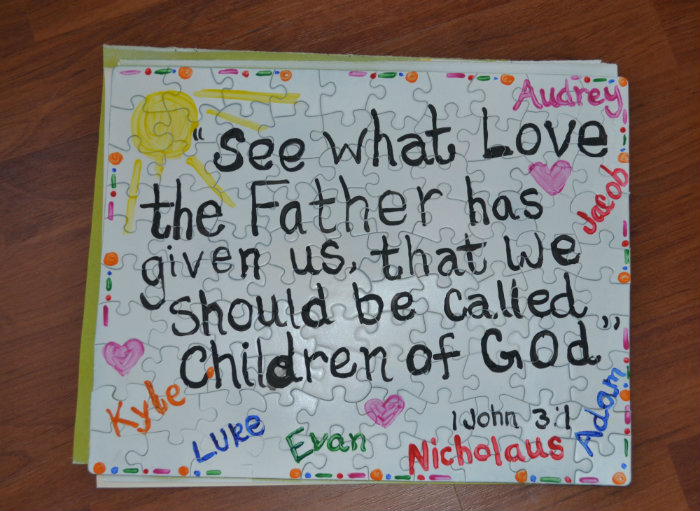 Audrey
"See what Love
Jacob
the Father has
given us, that we
should be called
Children of GOd"
Kyle
Luke
Evan
1 John 3:1
Nicholaus
Adam